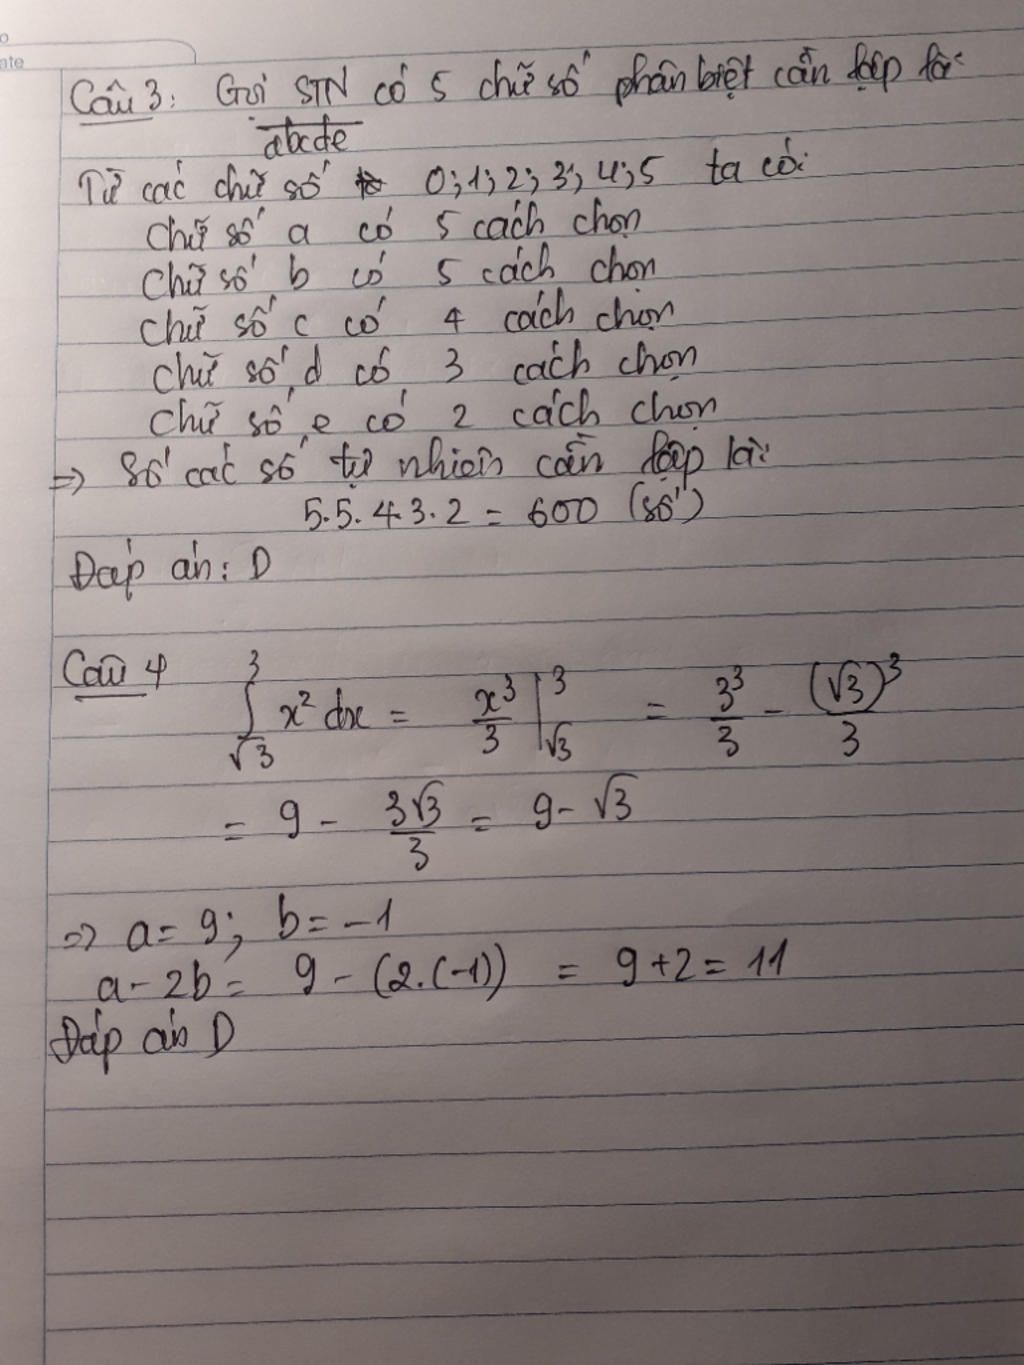 ate
Câu 3: Gọi STN có 5 chữ số phân biệt cần lập là:
abcde
Từ các chữ số 0;1;2;3;4;5 ta có:
Chữ số a có 5 cách chọn
Chữ số b có 5 cách chọn
Chữ số c có 4 cách chọn
Chữ số d có 3 cách chọn
Chữ số e có 2 cách chọn
=> Số các số tự nhiên cần lập là:
5.5.4.3.2 = 600 (số)
Đáp án: D
Câu 4
∫_{√3}^{3} x² dx = x³/3 |_{√3}^{3} = 3³/3 - (√3)³/3
= 9 - 3√3/3 = 9 - √3
=> a = 9; b = -1
a - 2b = 9 - (2.(-1)) = 9 + 2 = 11
Đáp án D